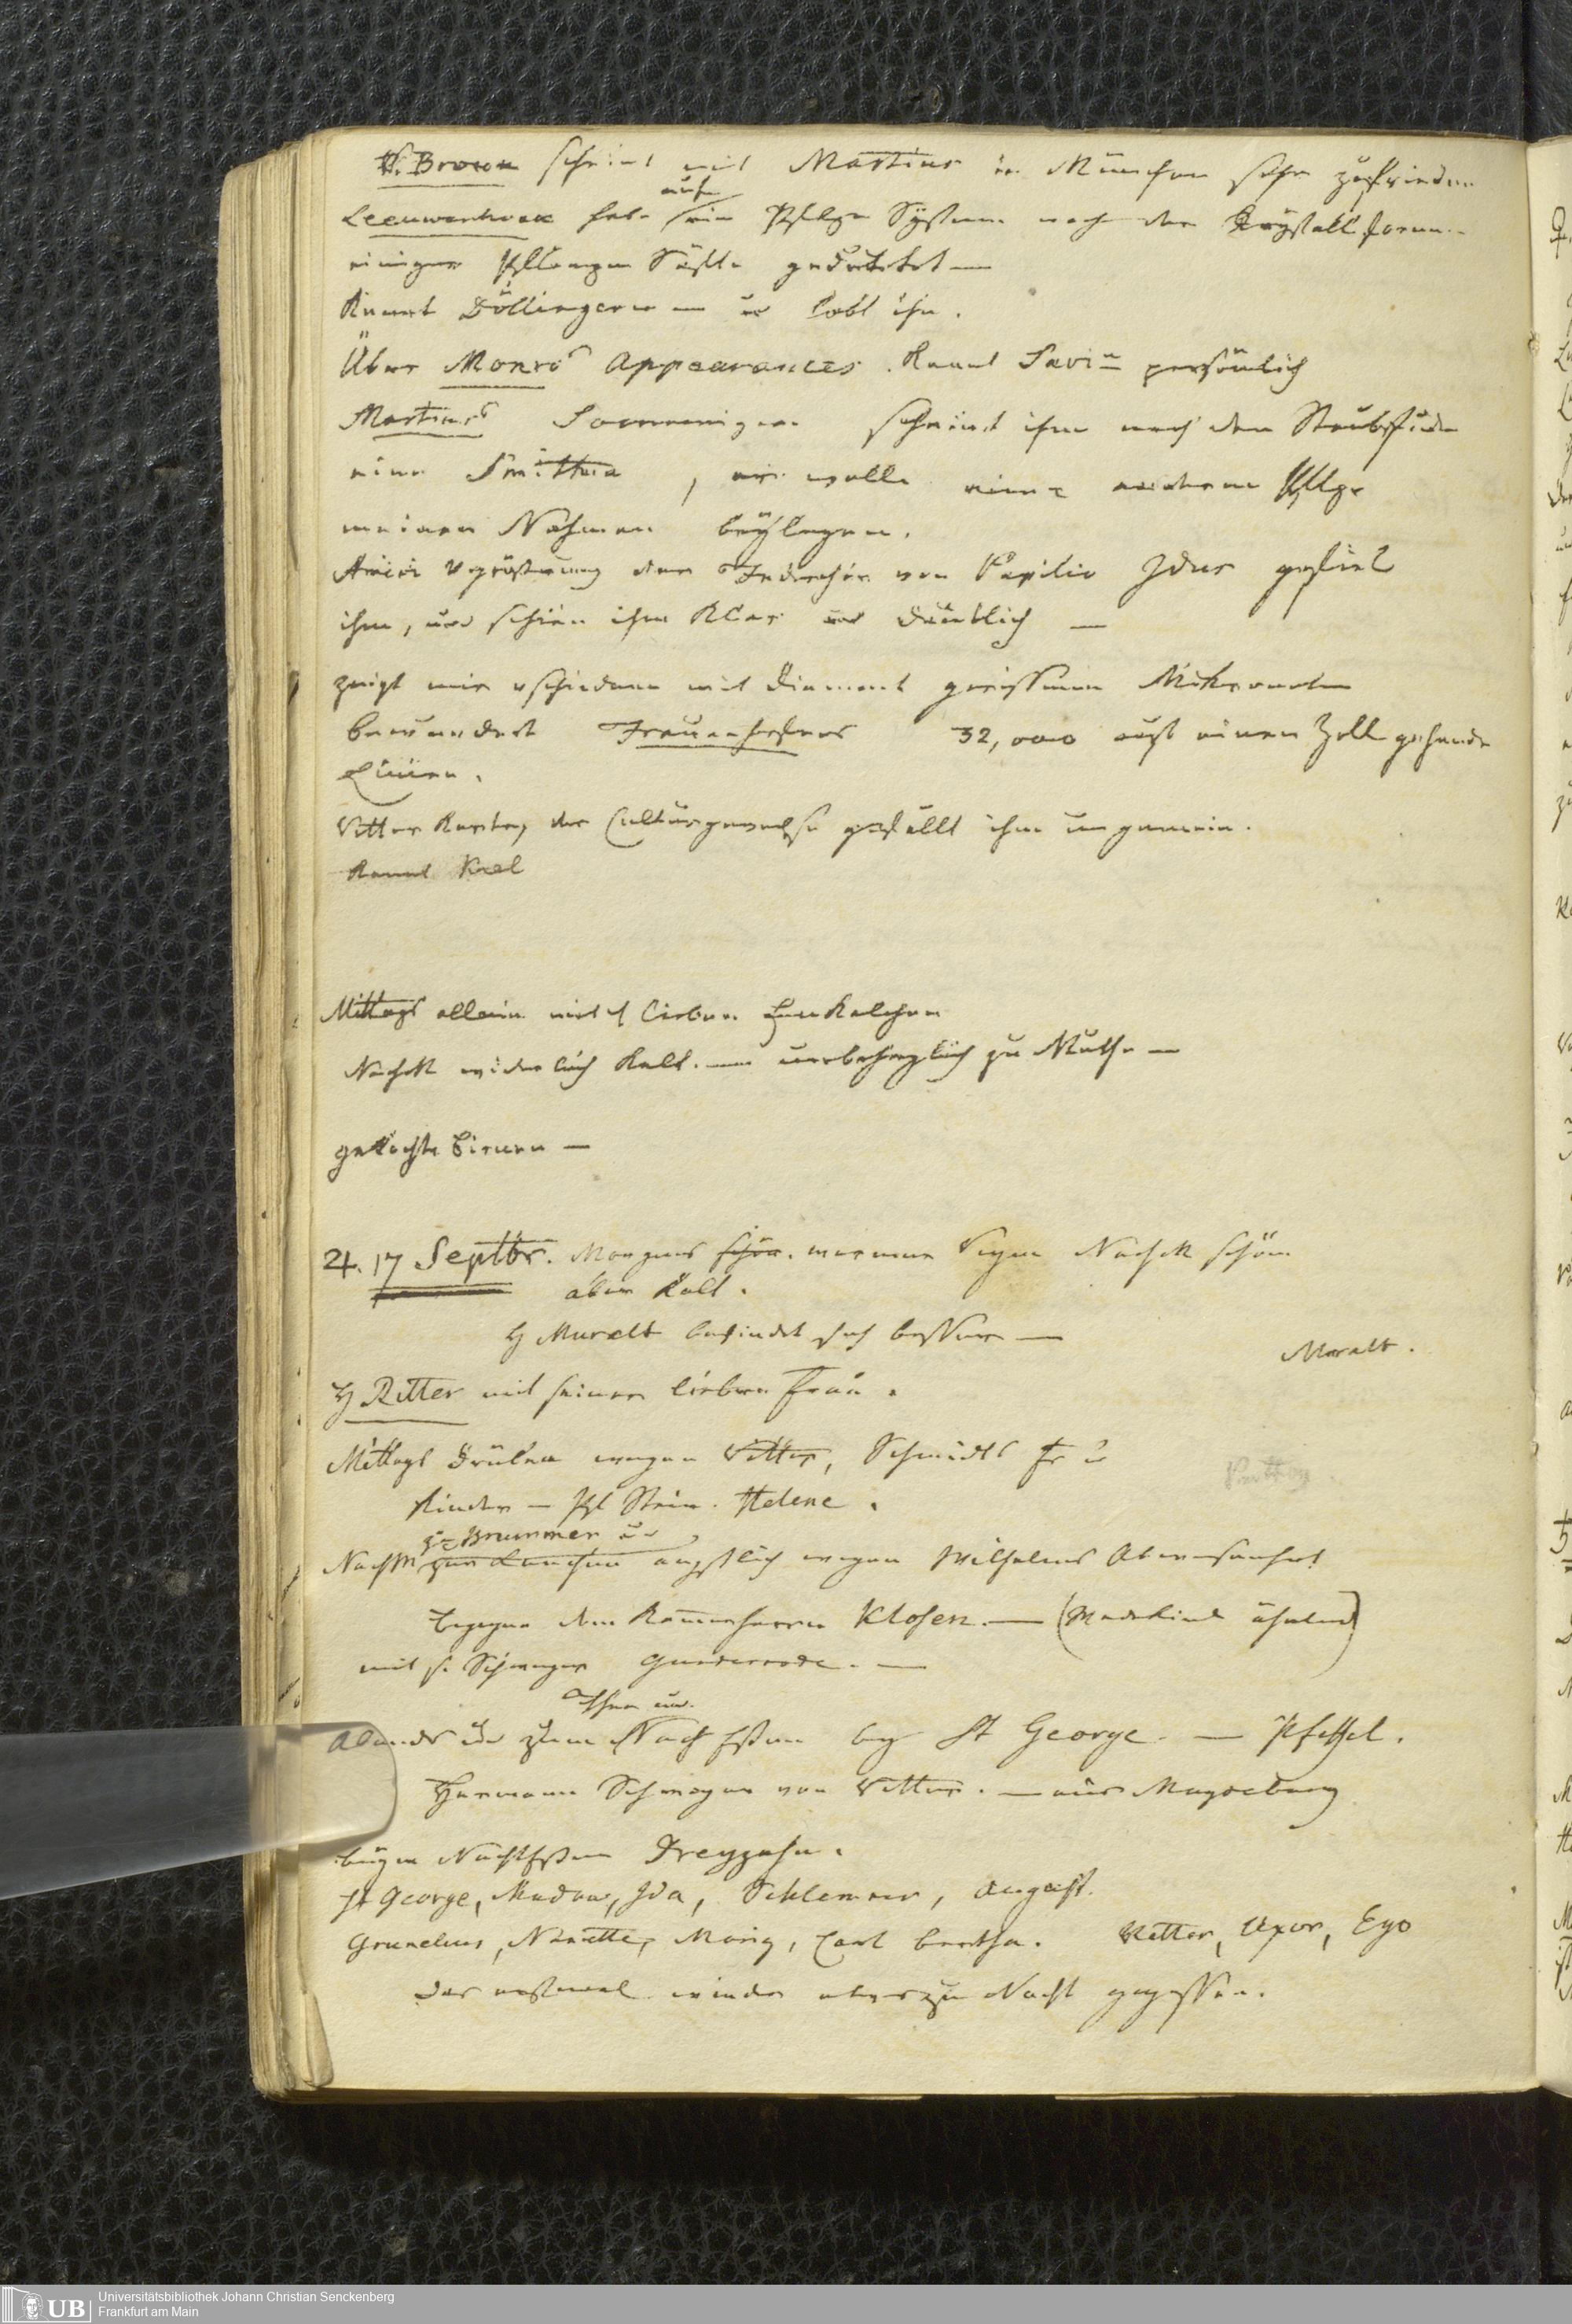 R. Brown scheint mit Martius in München sehr zufrieden
Leeuwenhoek habe auch ein System nach der Krystallform
einiger Pflanzen Säfte gedichtet —
Kennt Döllingern — u lobt ihn.
Über Monro's Appearances. Kennt Savi persönlich
Martius's Soemmeringia scheint ihm nach den Staubfäden
eine Smithia, er wolle einer anderen Pflze
meinen Nahmen beylegen.
Amici Vgrößerung der Federchen von Papilio Idas gefiel
ihm, und schien ihm klar und deutlich —
zeigt mir vschiedene mit Diamant gerissene Mikrometer
bewundert Frauenhofers 32,000 auf einen Zoll gehende
Linien.
Ritters Karten der Culturgewächse gefällt ihm ungemein.
Kennt
Mittags allein mit lieben Enkelchen
NachM widerlich kalt. — unbehaglich zu Muthe —
gekochte Birnen —
♃. 17 Septbr. Morgens schön. warmer Regen NachM schön
aber kalt.
H Muralt befindet sich besser —
Muralt.
H Ritter mit seiner lieben Frau.
Mittags drüben wegen Ritter, Schmidts Fr u
Kinder — Stein. Helene.
zu Brunner u
NachM ängstlich wegen Wilhelms Abwesenheit
Begegne dem Kammerherrn Klosen. — (Wedekind ähnlend)
mit s. Schwager Gunderrode. —
Thee und
Abends zum Nachtessen bey St George. — Pfeffel.
Hermann Schwager von Ritter. — aus Magdeburg
beym Nachtessen Dreyzehn.
St George, Madam, Ida, Schlemmer, August.
Grunelius, Nanette, Moriz, Carl Bertha. Ritter, Uxor, Ego
das erstemal wieder etwas zu Nacht gegessen.
Universitätsbibliothek Johann Christian Senckenberg
Frankfurt am Main
UB